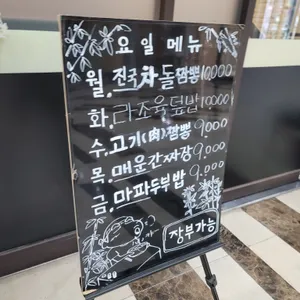 요일메뉴
월. 진국차돌짬뽕 10,000
화. 라조육덮밥 10,000
수. 고기(肉)짬뽕 9,000
목. 매운간짜장 9,000
금. 마파두부밥 9,000
장부가능